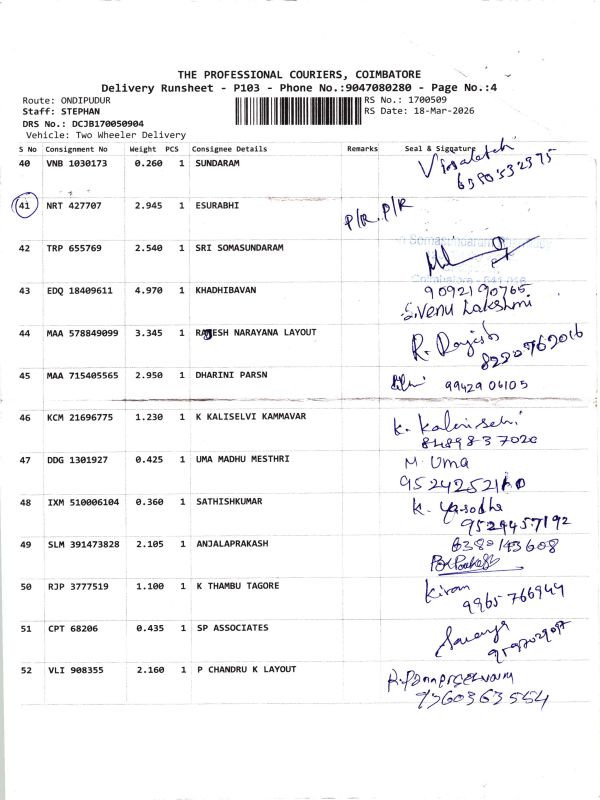 THE PROFESSIONAL COURIERS, COIMBATORE
Delivery Runsheet - P103 - Phone No.:9047080280 - Page No.:4
Route: ONDIPUDUR
RS No.: 1700509
Staff: STEPHAN
RS Date: 18-Mar-2026
DRS No.: DCJB170050904
Vehicle: Two Wheeler Delivery
S No Consignment No Weight PCS Consignee Details Remarks Seal & Signature
40 VNB 1030173 0.260 1 SUNDARAM
41 NRT 427707 2.945 1 ESURABHI P/R. P/R
42 TRP 655769 2.540 1 SRI SOMASUNDARAM
43 EDQ 18409611 4.970 1 KHADHIBAVAN 9092190765
S.Venu Lakshmi
44 MAA 578849099 3.345 1 RAJESH NARAYANA LAYOUT R. Rajesh
8220762016
45 MAA 715405565 2.950 1 DHARINI PARSN 99429 06105
46 KCM 21696775 1.230 1 K KALISELVI KAMMAVAR K. Kaliselvi
8489837020
47 DDG 1301927 0.425 1 UMA MADHU MESTHRI M. Uma
48 IXM 510006104 0.360 1 SATHISHKUMAR K. Yasodha
9529457192
49 SLM 391473828 2.105 1 ANJALAPRAKASH 6380143608
50 RJP 3777519 1.100 1 K THAMBU TAGORE Kiran
9965766944
51 CPT 68206 0.435 1 SP ASSOCIATES
52 VLI 908355 2.160 1 P CHANDRU K LAYOUT
9360363554